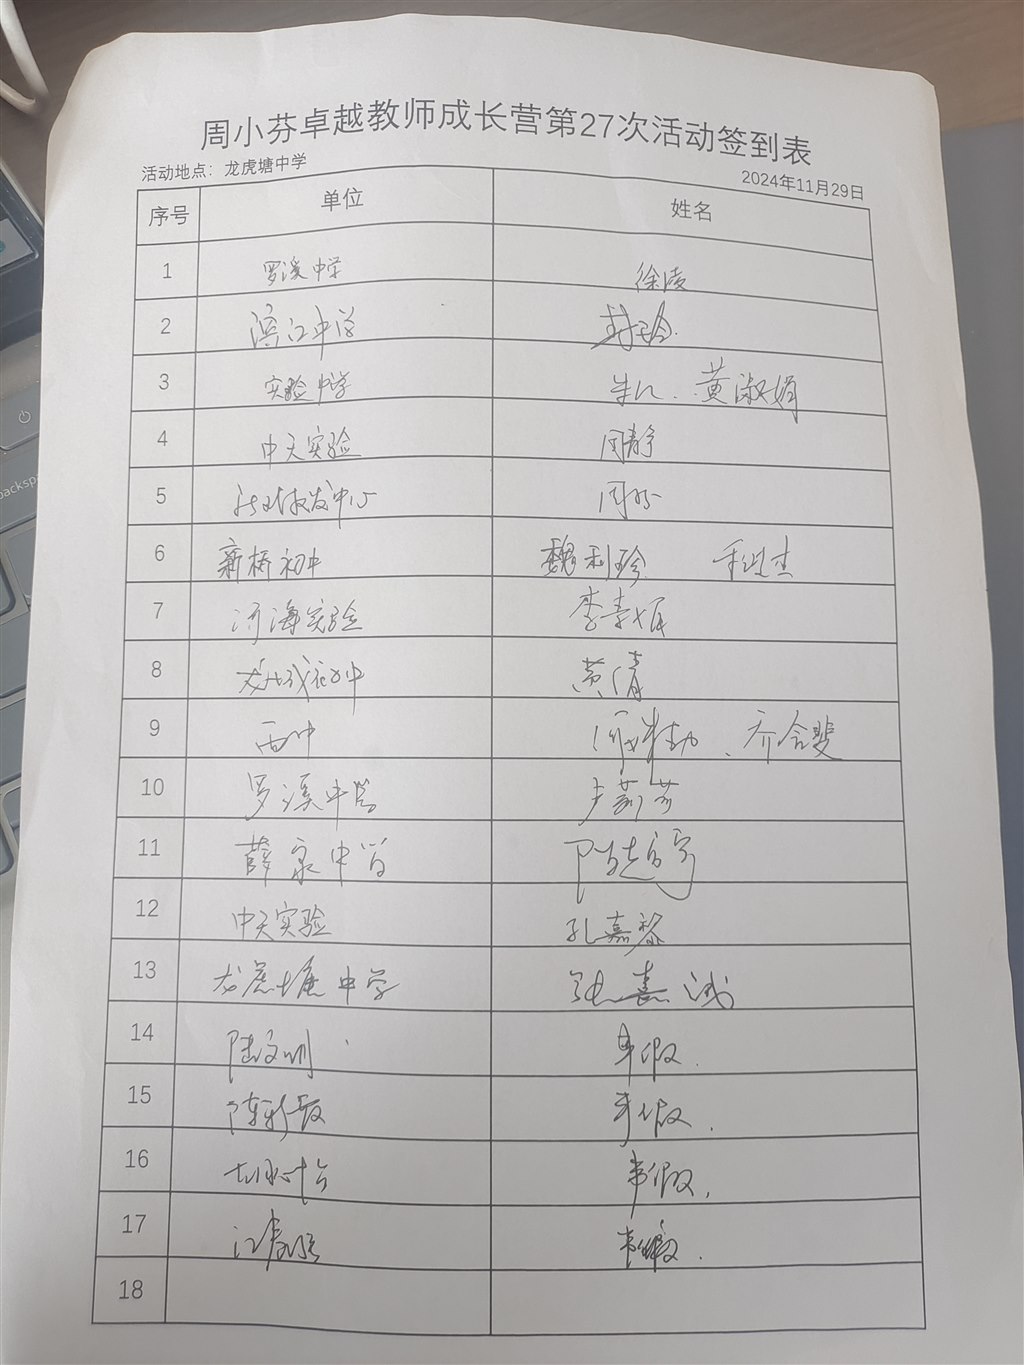 周小芬卓越教师成长营第27次活动签到表
活动地点：龙虎塘中学
2024年11月29日
序号 单位 姓名
1 罗溪中学 徐凌
2 滨江中学
3 实验中学 朱 、黄淑娟
4 中天实验 闵静
5 中心 周
6 新桥初中 魏利珍
7 河海实验 李
8 龙城初中 黄倩
9 西中 、乔含斐
10 罗溪中学 卢莉芳
11 薛家中学 陈
12 中天实验 孔嘉黎
13 龙虎塘中学 张嘉诚
14 陆文明 事假.
15 陈 事假.
16 事假.
17 江 事假.
18
backspa